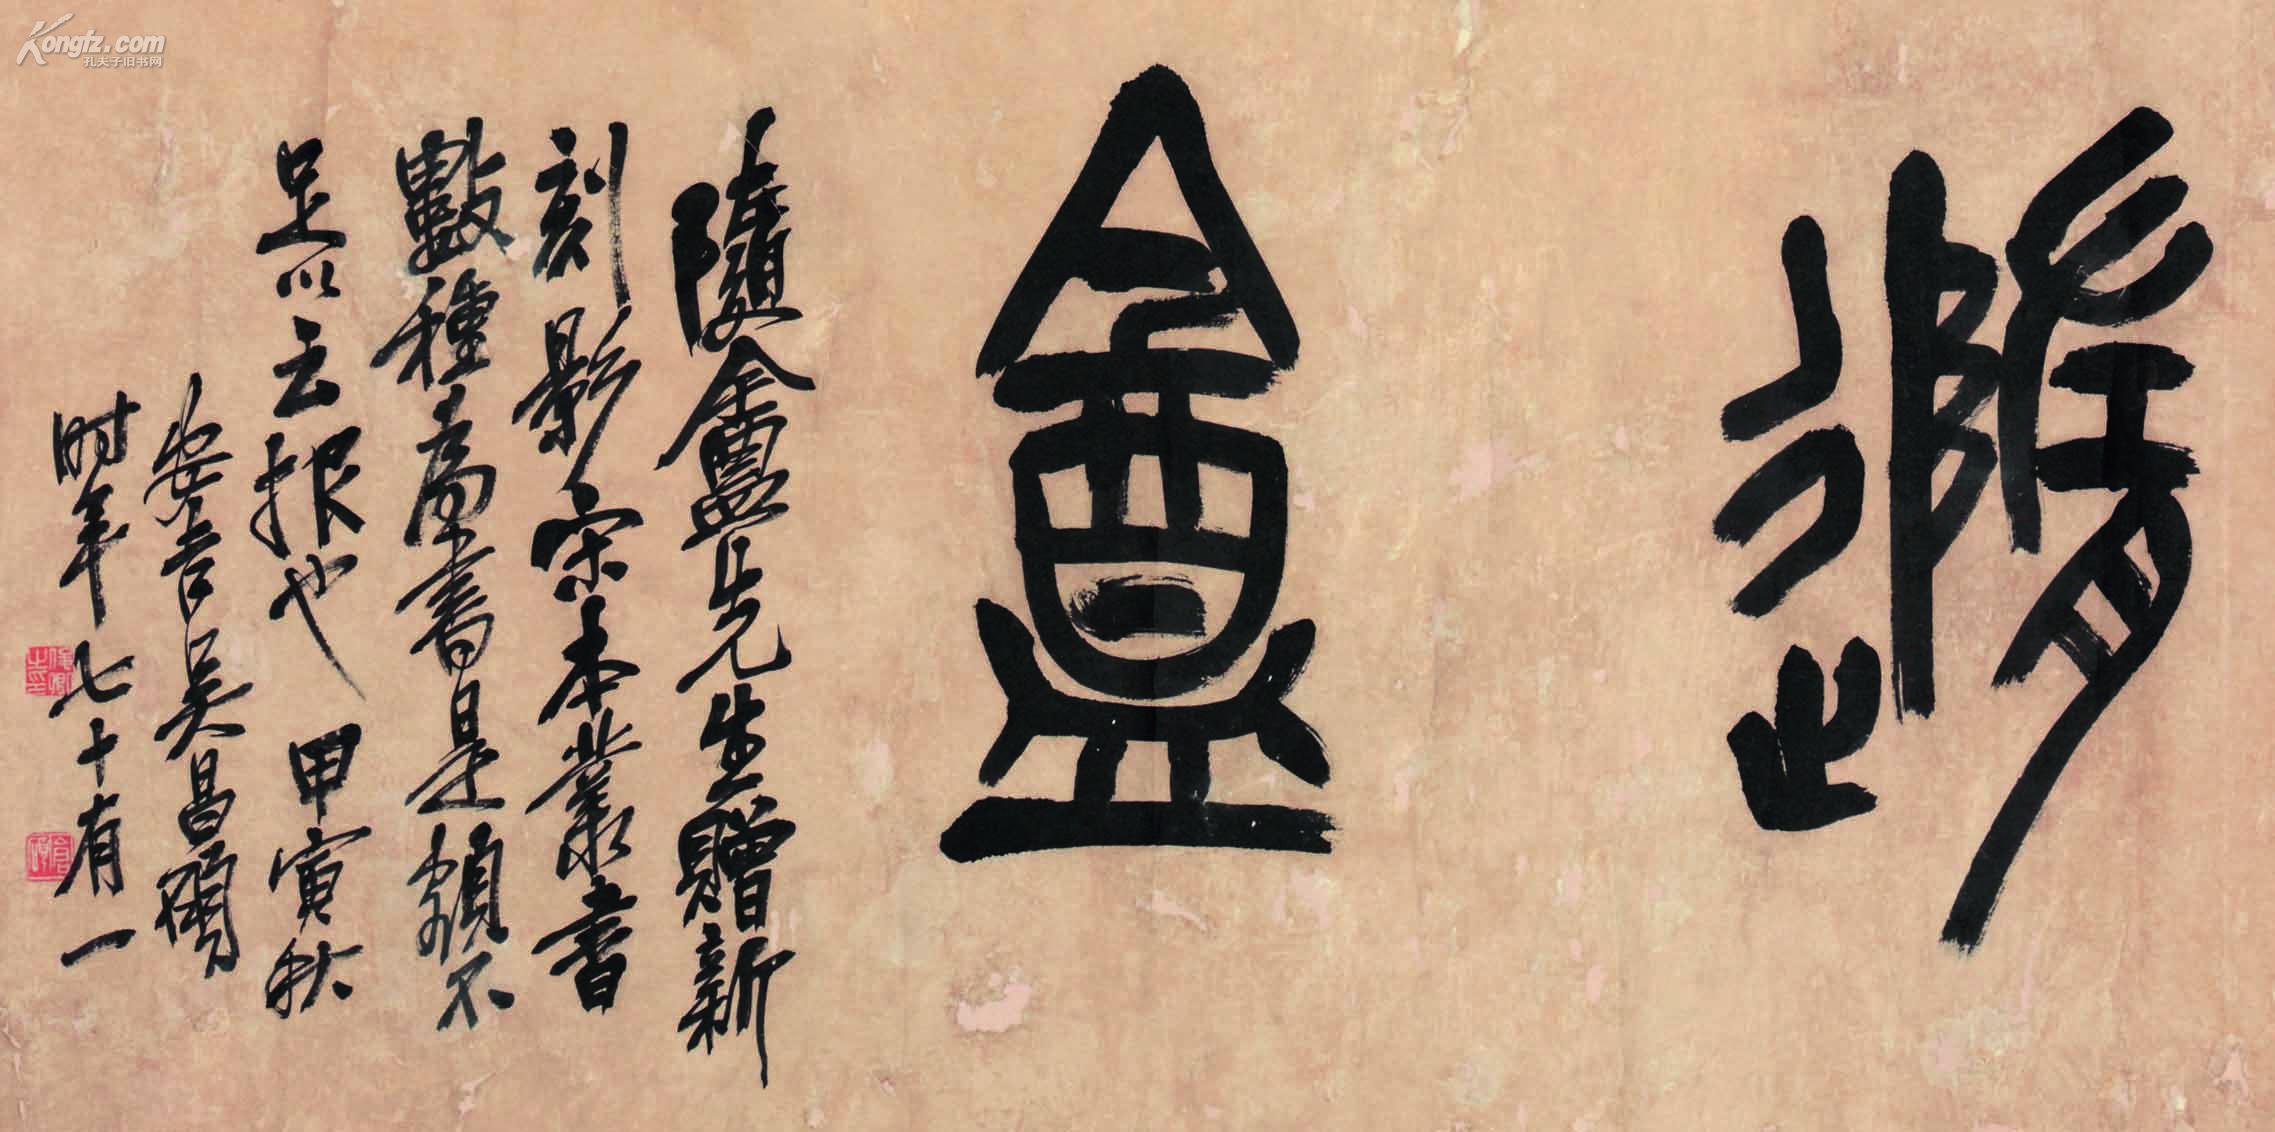 隨盦
隨盦先生贈新
刻影宋本叢書
數種為書是額不
足以云报也 甲寅秋
安吉吳昌碩
时年七十有一
Kongfz.com
孔夫子旧书网